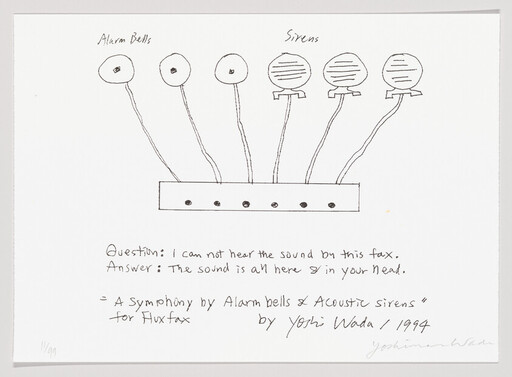 Alarm Bells
Sirens
Question: I can not hear the sound by this fax.
Answer: The sound is all here & in your head.
"A Symphony by Alarm bells & Acoustic sirens"
for Fluxfax by Yoshi Wada / 1994
Yoshimasa Wada